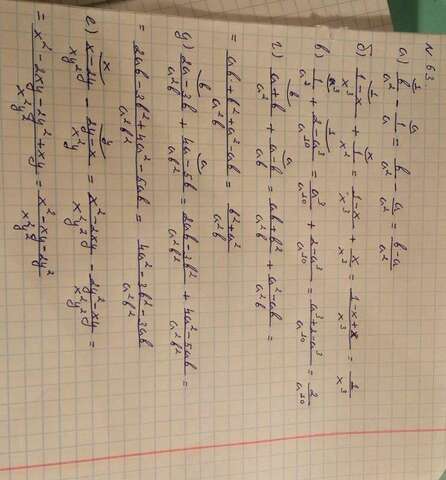 N 63.
а) b/a² - 1/a = b/a² - a/a² = b-a/a²
б) 1-x/x³ + 1/x² = 1-x/x³ + x/x³ = 1-x+x/x³ = 1/x³
в) 1/a⁷ + 2-a³/a¹⁰ = a³/a¹⁰ + 2-a³/a¹⁰ = a³+2-a³/a¹⁰ = 2/a¹⁰
г) a+b/a² + a-b/ab = ab+b²/a²b + a²-ab/a²b =
= ab+b²+a²-ab/a²b = b²+a²/a²b
д) 2a-3b/a²b + 4a-5b/ab² = 2ab-3b²/a²b² + 4a²-5ab/a²b² =
= 2ab-3b²+4a²-5ab/a²b² = 4a²-3b²-3ab/a²b²
е) x-2y/xy² - 2y-x/x²y = x²-2xy/x²y² - 2y²-xy/x²y² =
= x²-2xy-2y²+xy/x²y² = x²-xy-2y²/x²y²